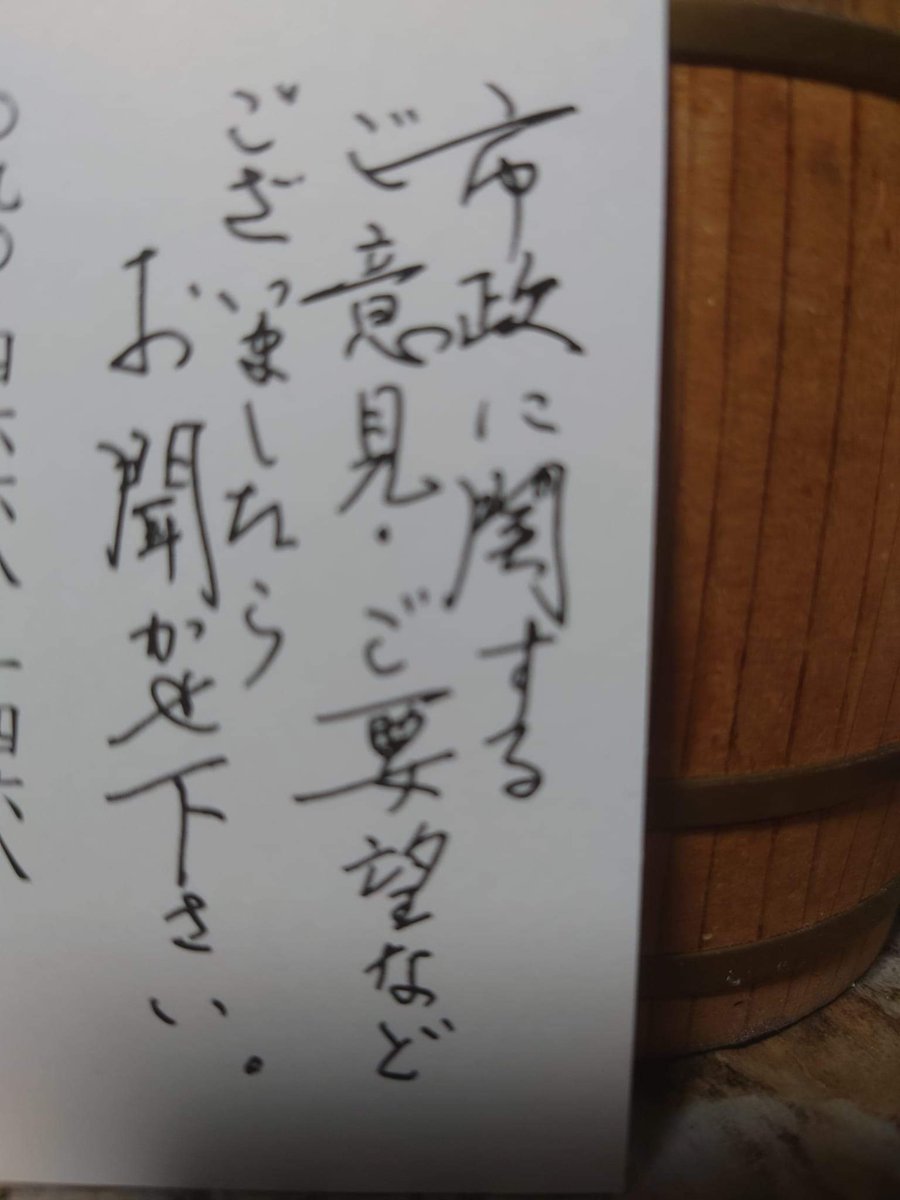 市政に関する
ご意見・ご要望など
ございましたら
お聞かせ下さい.